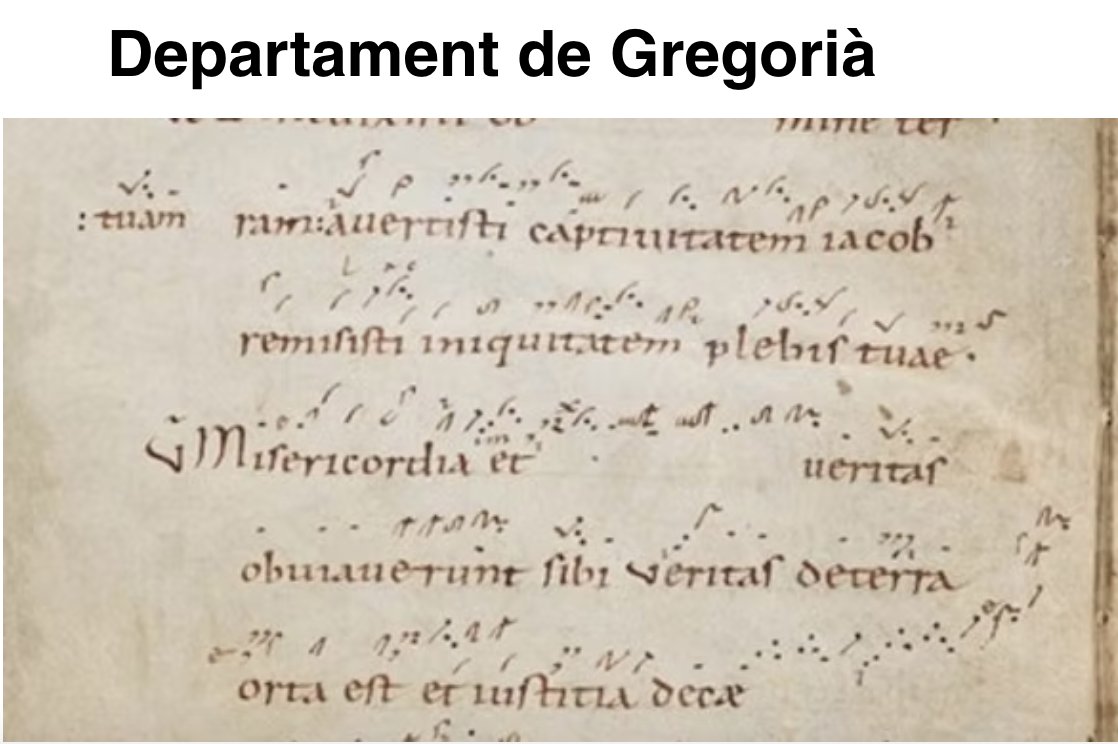 Departament de Gregorià
mine ter
: tuam ram: auertiſti captiuitatem iacob
remiſiſti iniquitatem plebiſ tuae.
V Miſericordia et ueritaſ
obuiauerunt ſibi veritaſ deterra
orta eſt et iuſtitia decæ